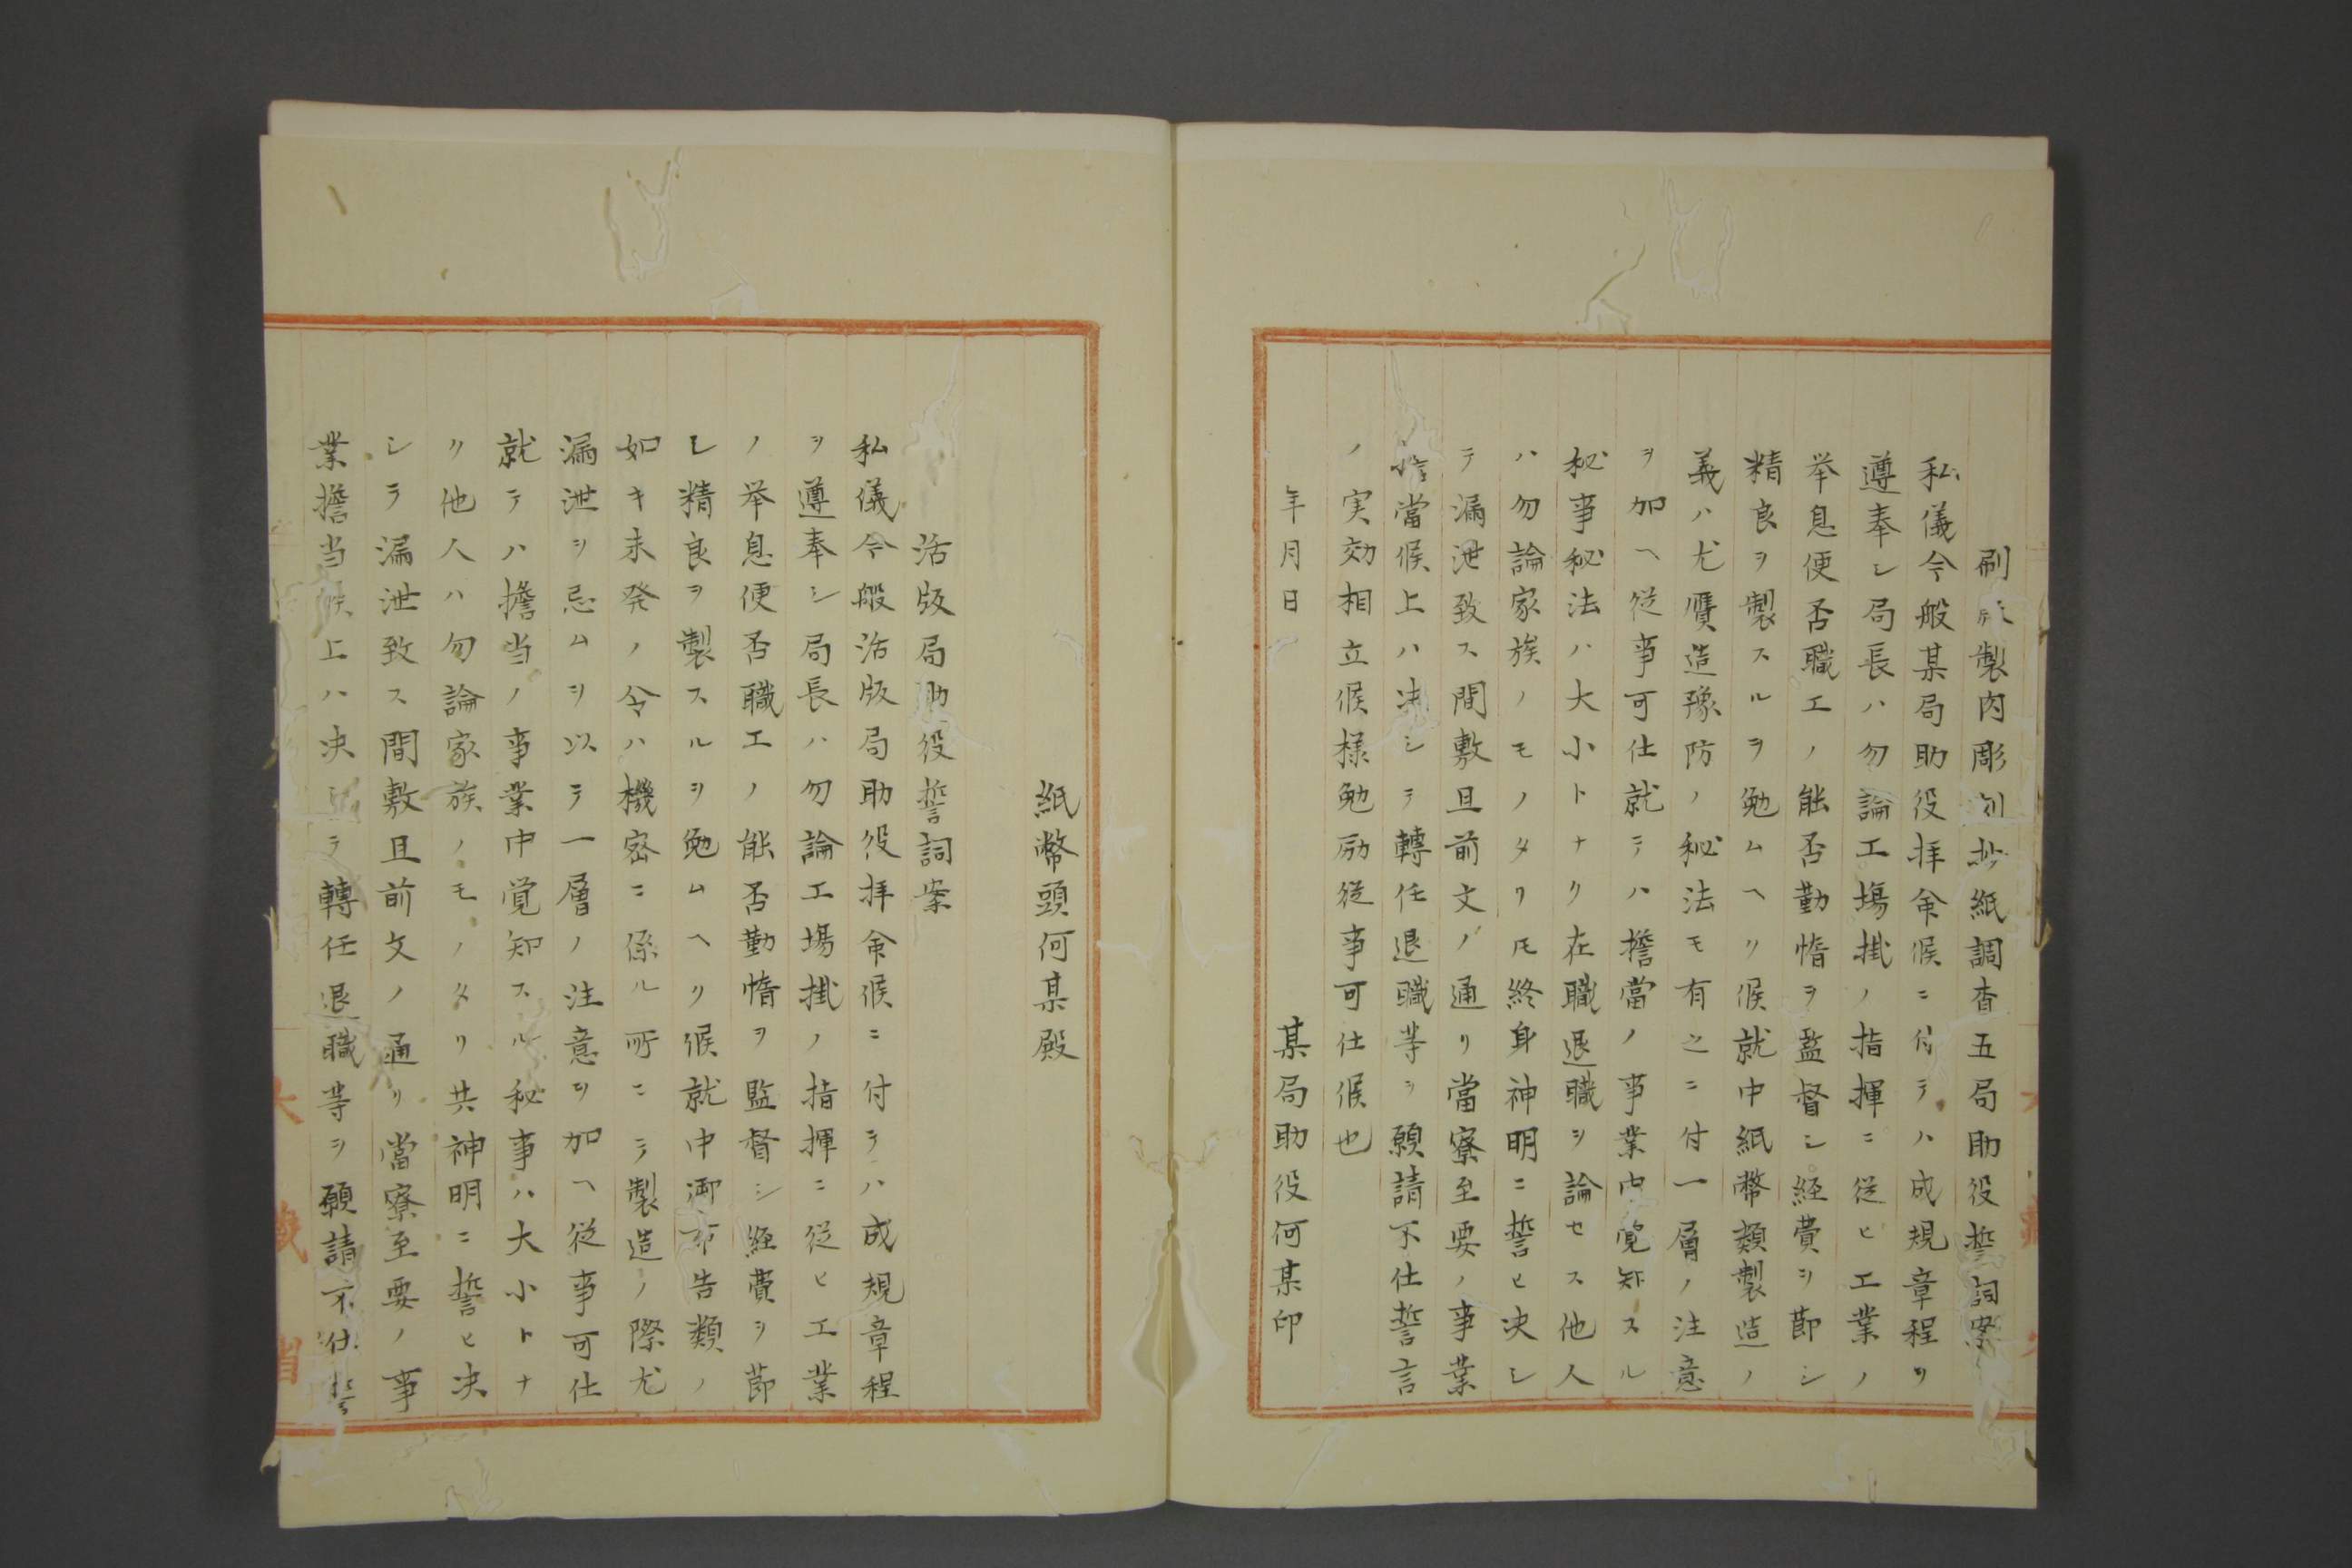 刷版製肉彫刻抄紙調査五局助役誓詞案
私儀今般某局助役拝命候ニ付テハ成規章程ヲ
遵奉シ局長ハ勿論工場掛ノ指揮ニ従ヒ工業ノ
挙息便否職工ノ能否勤惰ヲ監督シ経費ヲ節シ
精良ヲ製スルヲ勉ムヘリ候就中紙幣類製造ノ
義ハ尤贋造豫防ノ秘法モ有之ニ付一層ノ注意
ヲ加ヘ従事可仕就テハ擔當ノ事業中覚知スル
秘事秘法ハ大小トナク在職退職ヲ論セス他人
ハ勿論家族ノモノタリ𪜈終身神明ニ誓ヒ决シ
テ漏泄致ス間敷且前文ノ通リ當寮至要ノ事業
擔當候上ハ决シテ轉任退職等ヲ願請不仕誓言
ノ実効相立候様勉励従事可仕候也
年月日
某局助役何某印
紙幣頭何某殿
活版局助役誓詞案
私儀今般活版局助役拝命候ニ付テハ成規章程
ヲ遵奉シ局長ハ勿論工場掛ノ指揮ニ従ヒ工業
ノ挙息便否職工ノ能否勤惰ヲ監督シ経費ヲ節
シ精良ヲ製スルヲ勉ムヘリ候就中御布告類ノ
如キ未発ノ令ハ機密ニ係ル所ニシテ製造ノ際尤
漏泄ヲ忌ムヲ以テ一層ノ注意ヲ加ヘ従事可仕
就テハ擔当ノ事業中覚知スル秘事ハ大小トナ
リ他人ハ勿論家族ノモノタリ共神明ニ誓ヒ决
シテ漏泄致ス間敷且前文ノ通リ當寮至要ノ事
業擔当候上ハ决テ轉任退職等ヲ願請不仕誓
大藏省